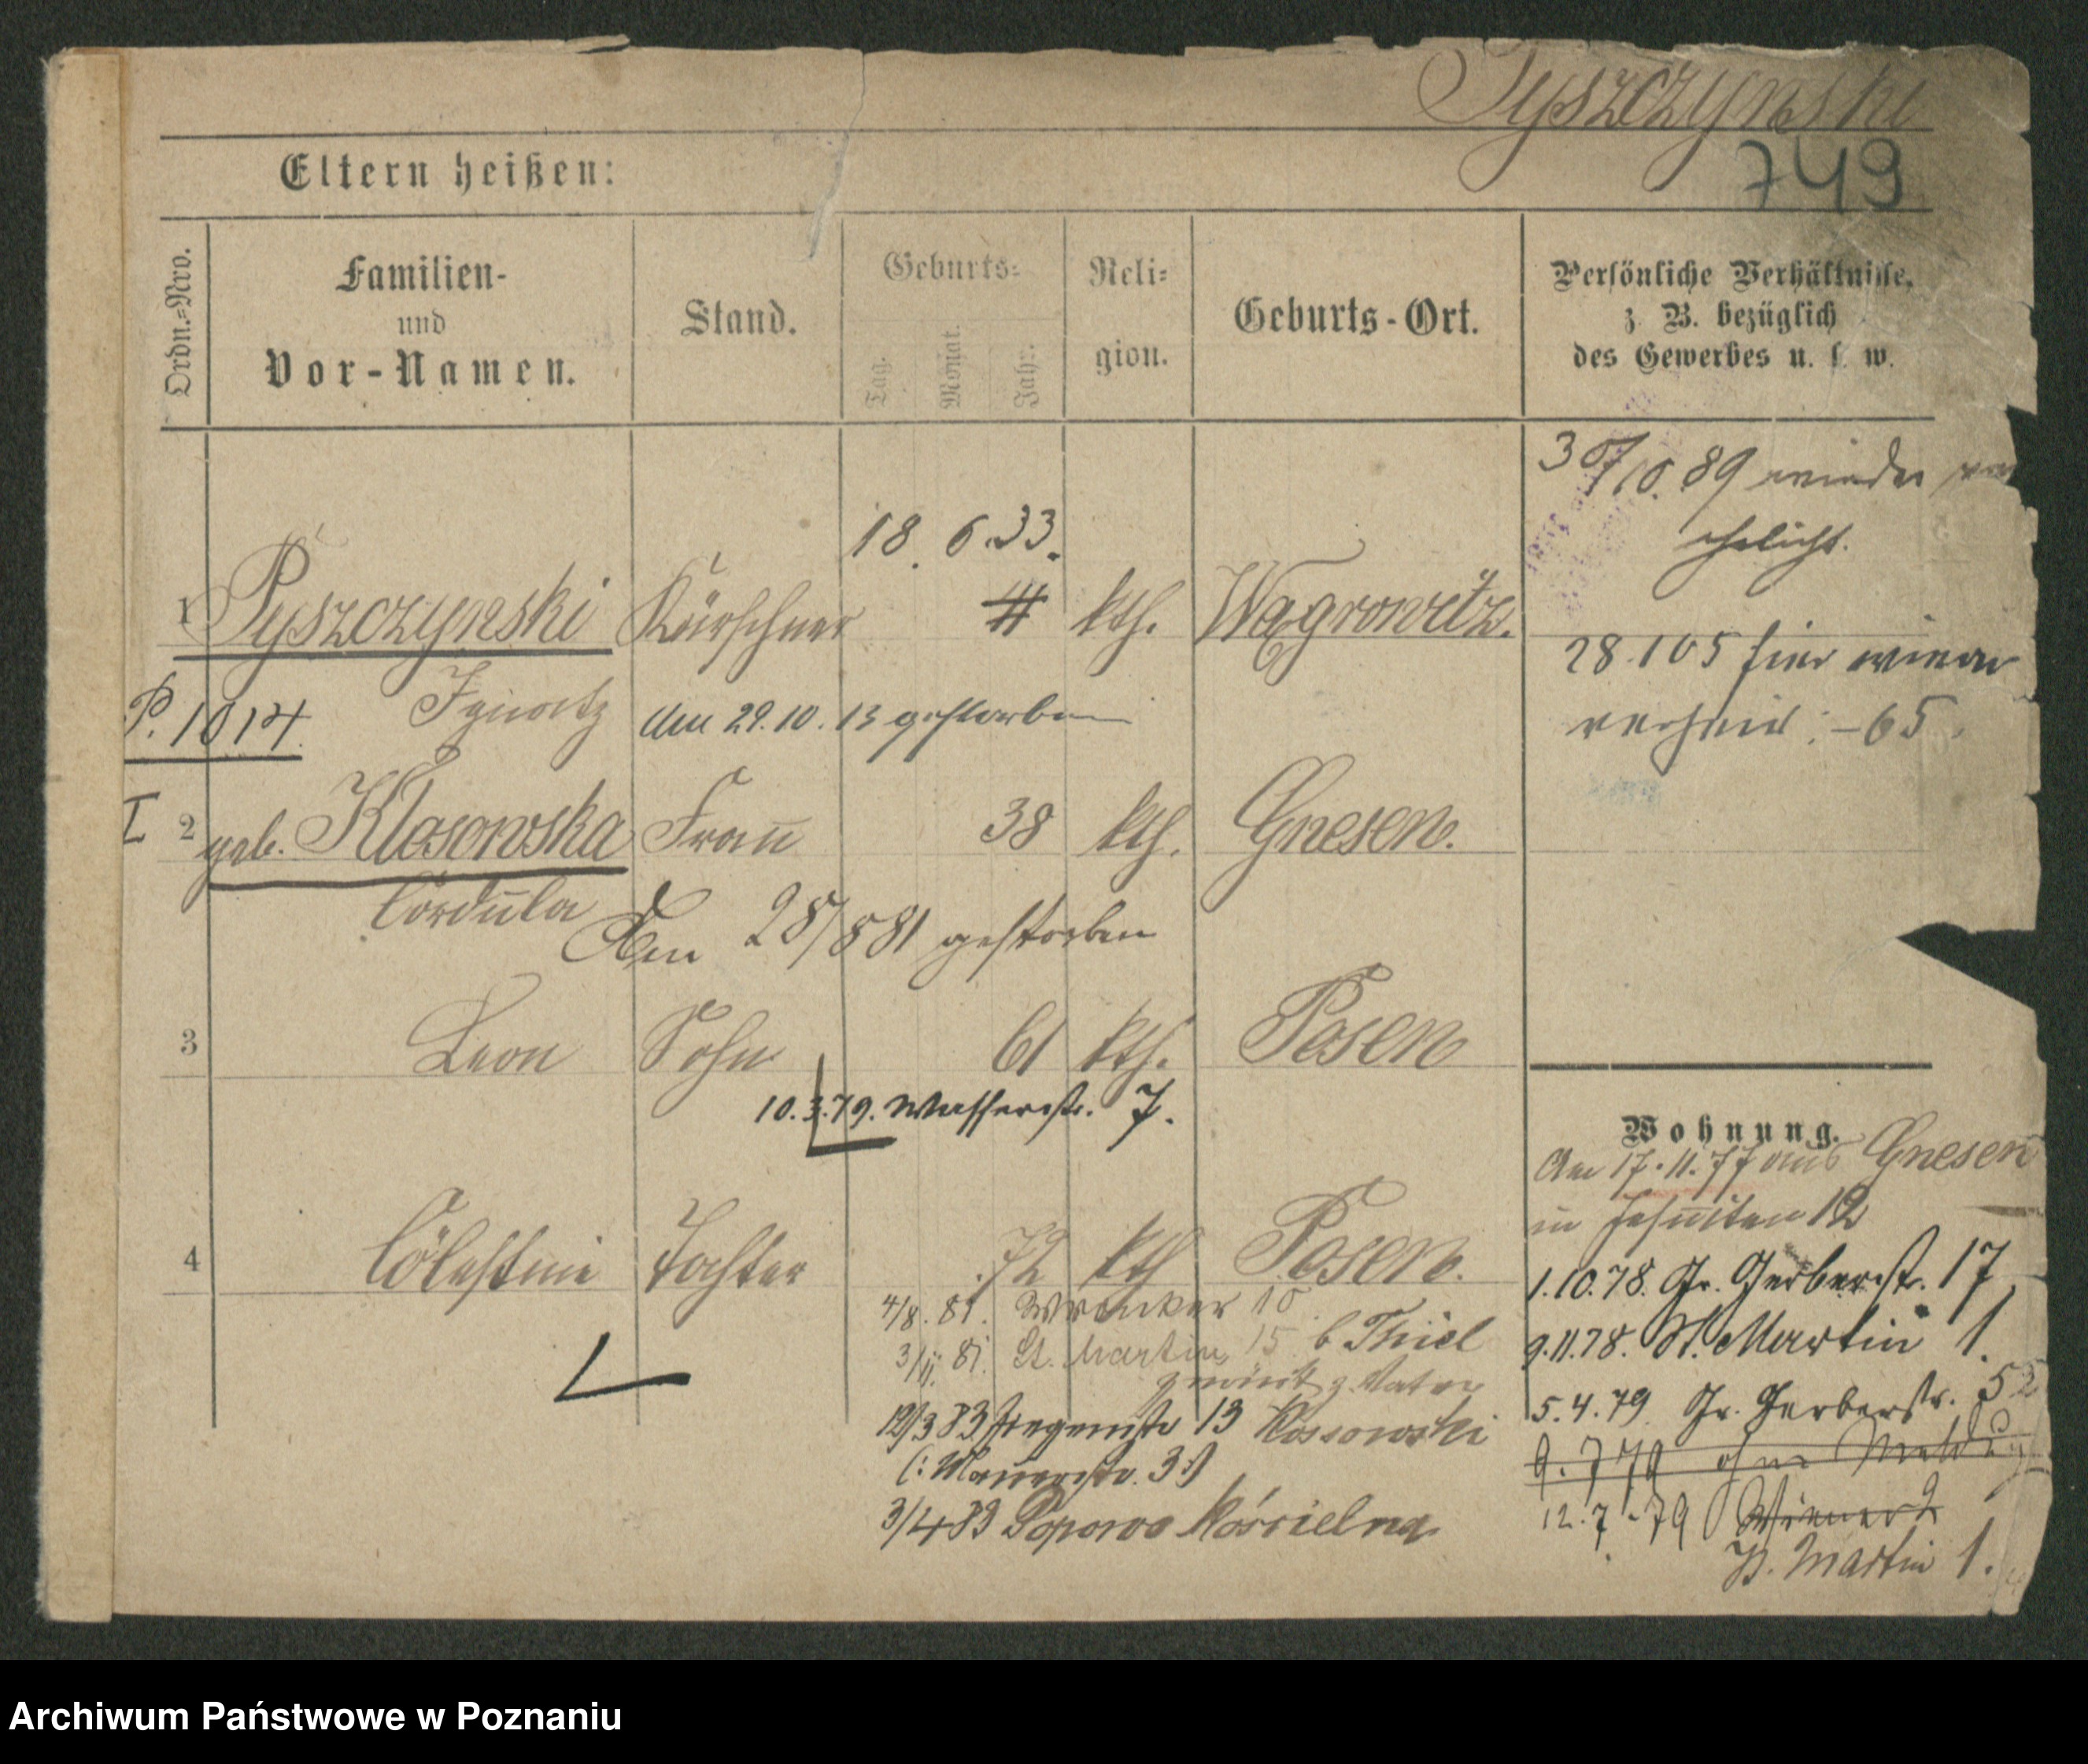 Pyszczynski
749
Eltern heißen:
Ordn.=Nro.
Familien-
und
Vor-Namen.
Stand.
Geburts=
Tag.
Monat.
Jahr.
Reli=
gion.
Geburts-Ort.
Persönliche Verhältnisse,
z. B. bezüglich
des Gewerbes u. s. w.
30/10. 89 wieder ver
ehelicht.
18. 6. 33.
1 Pyszczynski Kürschner kth. Wagrowitz.
28.105 hier wieder
verheir: -65.
P. 1014. Ignatz den 29.10.13 gestorben
I 2 geb. Klosowska Frau 38 kth. Gnesen.
Cordula
Den 28/8 81 gestorben
3 Leon Sohn 61 kth. Posen
10.3.79. Wasserstr. 7.
4 Cölestine Tochter 72 kth Posen.
4/8. 81. Wronker 10
3/11. 81. St. Martin 15 b Thiel
z. Vater
12/3 83 13 Kossowski
(: Mauerstr. 3 :)
3/4 83 Popowo Kościelne
Wohnung.
Am 17.11.77 aus Gnesen
in Jesuiten 12
1.10.78. Gr. Gerberstr. 17
9.11.78. St. Martin 1.
5.4.79 Gr. Gerberstr. 52
9.7 79 ohne Meldung
12.7.79 Wiener 2
St. Martin 1.
Archiwum Państwowe w Poznaniu